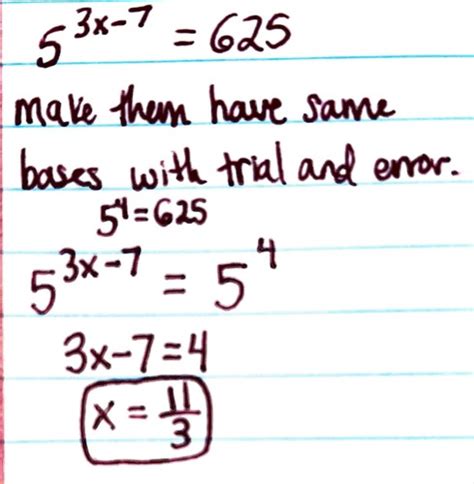 5^{3x-7} = 625
make them have same
bases with trial and error.
5^4=625
5^{3x-7} = 5^4
3x-7=4
x = 11/3